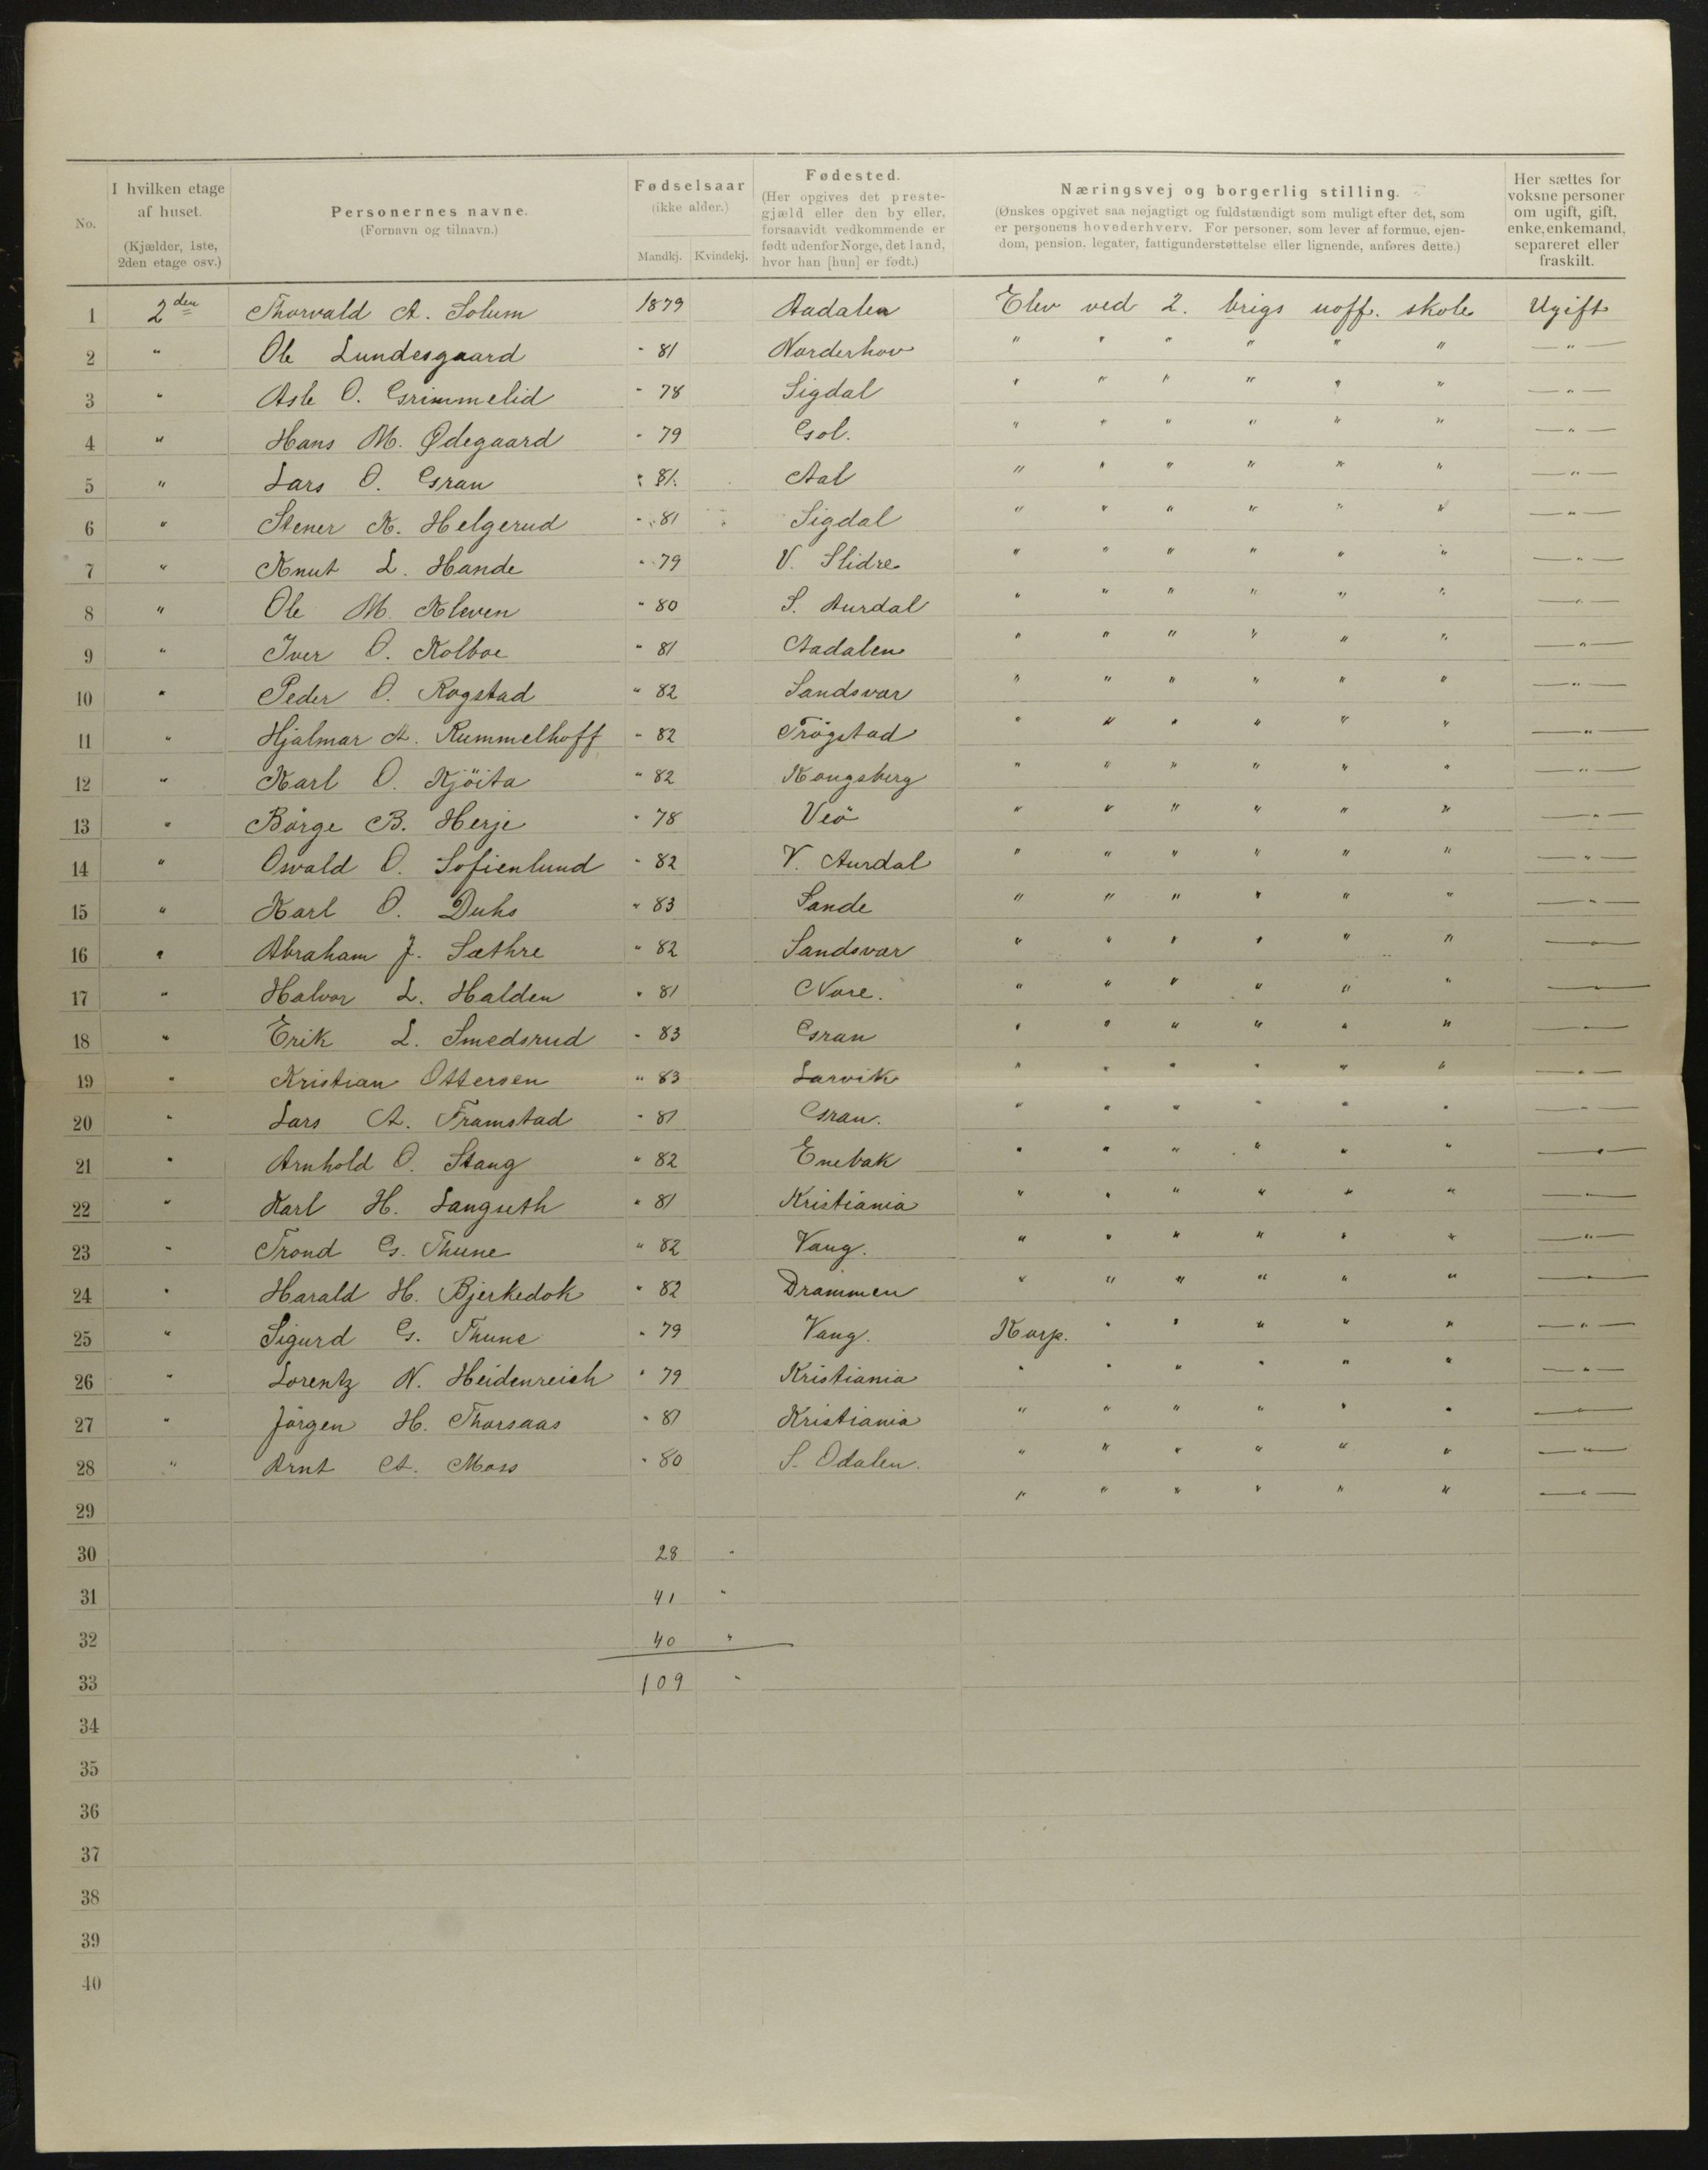 No.
I hvilken etage af huset. (Kjælder, 1ste, 2den etage osv.)
Personernes navne. (Fornavn og tilnavn.)
Fødselsaar (ikke alder.) Mandkj. Kvindekj.
Fødested. (Her opgives det prestegjæld eller den by eller, forsaavidt vedkommende er født udenfor Norge, det land, hvor han [hun] er født.)
Næringsvej og borgerlig stilling. (Ønskes opgivet saa nøjagtigt og fuldstændigt som muligt efter det, som er personens hovederhverv. For personer, som lever af formue, ejendom, pension, legater, fattigunderstøttelse eller lignende, anføres dette.)
Her sættes for voksne personer om ugift, gift, enke, enkemand, separeret eller fraskilt.
1 2den Thorvald A. Solum 1879 Aadalen Elev ved 2. brigs uoff. skole Ugift
2 " Ole Lundesgaard " 81 Norderhov " " " " " " "
3 " Asle O. Grimmelid " 78 Sigdal " " " " " " "
4 " Hans M. Ødegaard " 79 Gol. " " " " " " "
5 " Lars O. Gran " 81. Aal " " " " " " "
6 " Stener K. Helgerud " 81 Sigdal " " " " " " "
7 " Knut L. Hande " 79 V. Slidre " " " " " " "
8 " Ole M. Kleven " 80 S. Aurdal " " " " " " "
9 " Iver O. Kolboe " 81 Aadalen " " " " " " "
10 " Peder O. Rogstad " 82 Sandsvar " " " " " " "
11 " Hjalmar A. Rummelhoff " 82 Trögstad " " " " " " "
12 " Karl O. Kjöita " 82 Kongsberg " " " " " " "
13 " Börge B. Herje " 78 Veö " " " " " " "
14 " Osvald O. Sofienlund " 82 V. Aurdal " " " " " " "
15 " Karl O. Duhs " 83 Sande " " " " " " "
16 " Abraham J. Sæthre " 82 Sandsvar " " " " " " "
17 " Halvor L. Halden " 81 Nore. " " " " " " "
18 " Erik L. Smedsrud " 83 Gran " " " " " " "
19 " Kristian Ottersen " 83 Larvik " " " " " " "
20 " Lars A. Framstad " 81 Gran. " " " " " " "
21 " Arnhold O. Stang " 82 Enebak " " " " " " "
22 " Karl H. Langseth " 81 Kristiania " " " " " " "
23 " Trond G. Thune " 82 Vang. " " " " " " "
24 " Harald H. Bjerkedok " 82 Drammen " " " " " " "
25 " Sigurd G. Thune " 79 Vang. Korp. " " " " " "
26 " Lorentz N. Heidenreich " 79 Kristiania " " " " " " "
27 " Jörgen H. Thorsaas " 81 Kristiania " " " " " " "
28 " Arnt A. Moss " 80 S. Odalen. " " " " " " "
29 " " " " " " "
30 28 "
31 41 "
32 40 "
33 109 "
34
35
36
37
38
39
40